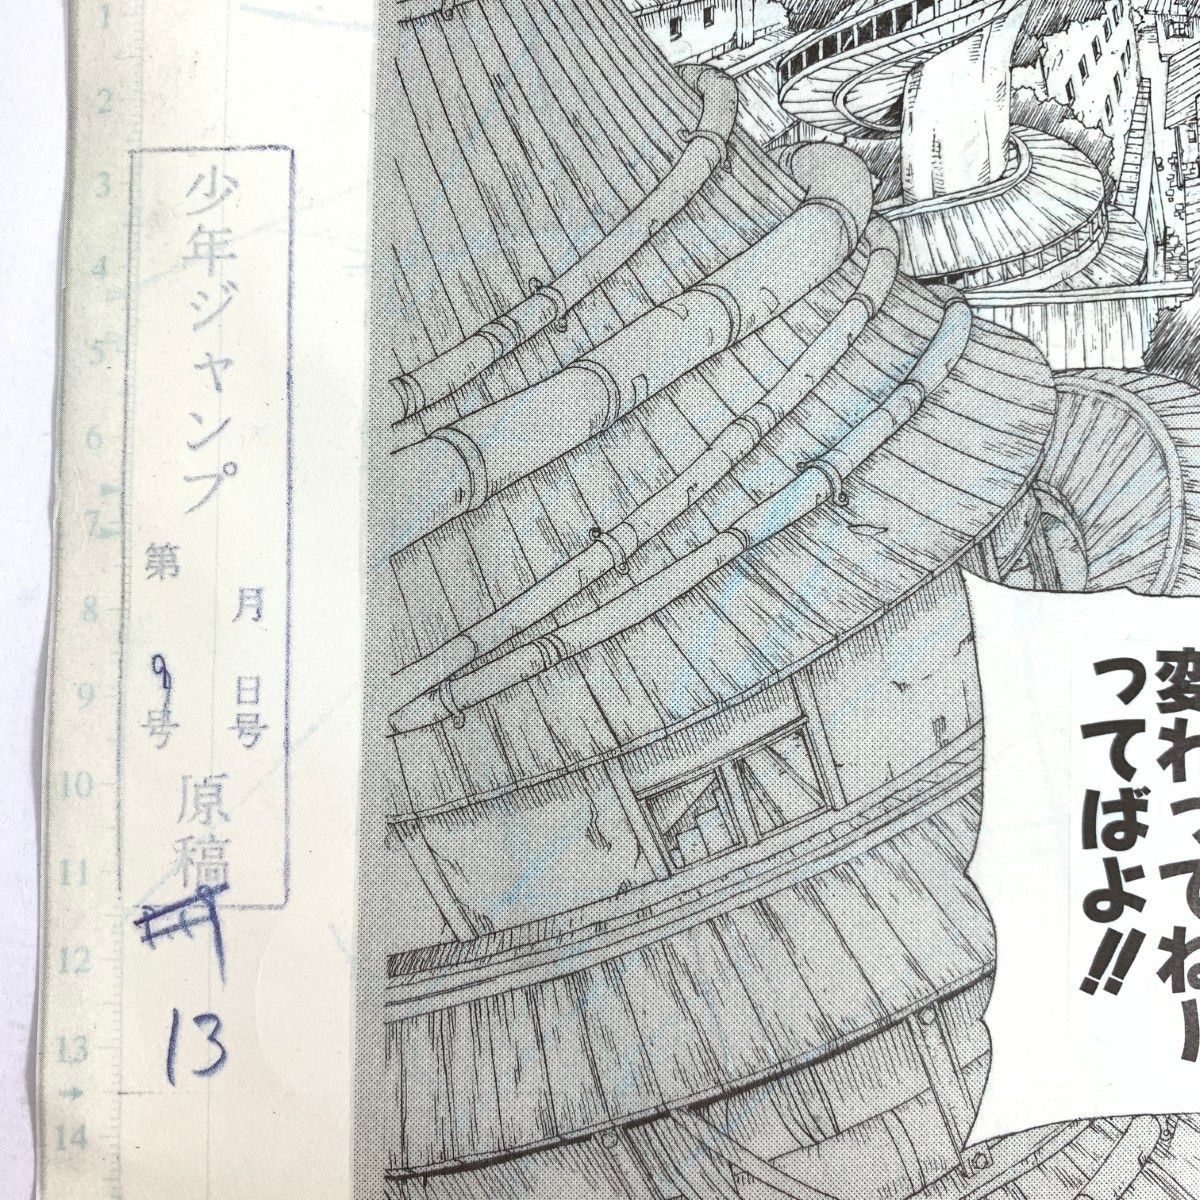 1
2
3
4
5
6
7
8
9
10
11
12
13
14
少年ジャンプ
月 日号
第 9 号
原稿
13
変わってねー
ってばよ!!